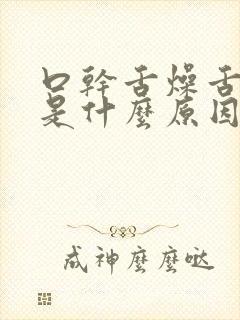 口幹舌燥舌
是什麼原因
成神麼麼噠